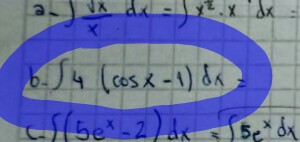 a- ∫ √x/x dx = ∫ x^½ · x dx =
b- ∫ 4 (cosx - 1) dx =
c- ∫ (5eˣ - 2) dx = ∫ 5eˣ dx